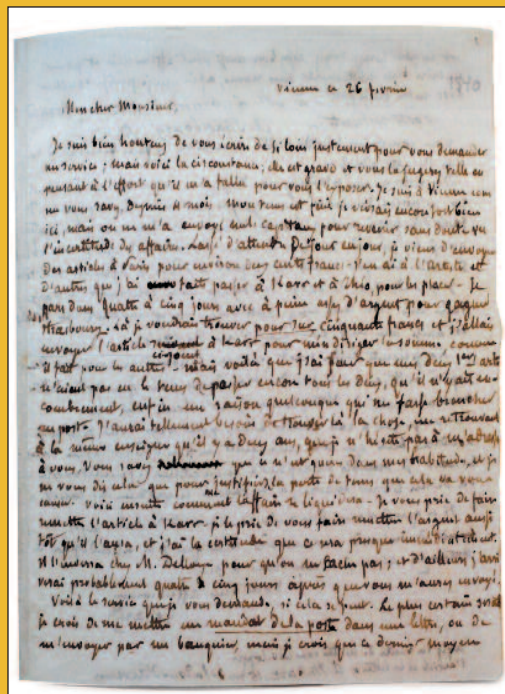 Vienne ce 26 février
Mon cher Monsieur,
Je suis bien honteux de vous écrire de si loin justement pour vous demander
un service ; mais voici la circonstance ; elle est grave et vous la jugerez telle en
pensant à l'effort qu'il m'a fallu pour vous l'exposer. Je suis à Vienne com
me vous savez depuis 4 mois. Mon tems est fini je vivais encore fort bien
ici, mais on ne m'a envoyé pour revenir sans doute vu
l'incertitude des affaires. Lassé d'attendre de jour en jour, je viens d'envoyer
des articles à Paris pour environ deux cents francs. J'en ai à l'artiste et
d'autres que j'ai fait passer à Karr et à Théo pour les placer. Je
pars dans quatre à cinq jours avec à peine assez d'argent pour gagner
Strasbourg. Là je voudrais trouver pour sur cinquante francs et j'allais
envoyer l'article à Karr pour m'en diriger la somme comme
il fait pour les autres. mais voilà que j'ai peur que mes deux 1ers articles
n'aient pas eu le tems de passer encore tous les deux, qu'il n'y ait en-
combrement, enfin une raison quelconque qui ne fasse broncher
au port. J'aurai tellement besoin de trouver là la chose, me retrouvant
à la même enseigne qu'il y a deux ans, que je n'hésite pas à m'adresser
à vous, vous savez que ce n'est guère dans mes habitudes, et je
ne vous dis cela que pour justifier la perte de tems que cela va vous
causer. Voici ensuite comment l'affaire se liquidera. Je vous prie de faire
remettre l'article à Karr. je le prie de vous faire remettre l'argent aussi
tôt qu'il l'aura, et j'ai la certitude que ce sera presque immédiatement.
Il l'enverra chez M. pour qu'on ne sache pas ; et d'ailleurs j'arri
verai probablement quatre à cinq jours après que vous m'aurez envoyé.
Voilà le service que je vous demande, si cela se peut. Le plus certain serait
je crois de me mettre un mandat de la poste dans une lettre, ou de
m'envoyer par un banquier, mais je crois que ce dernier moyen